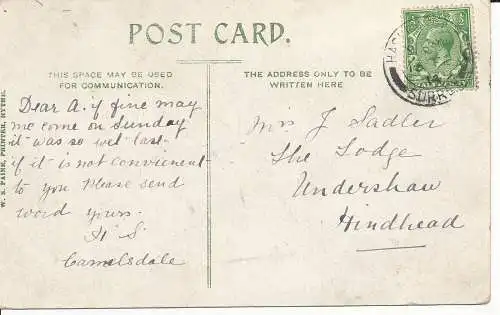 POST CARD.
THIS SPACE MAY BE USED
FOR COMMUNICATION.
THE ADDRESS ONLY TO BE
WRITTEN HERE
Dear A. if fine may
me come on Sunday
it was so wet last
if it is not convienent
to you Please send
word yours.
H S
Camelsdale
Mrs J Sadler
The Lodge
Undershaw
Hindhead
W. S. PAINE, PRINTER, HYTHE.
SURREY